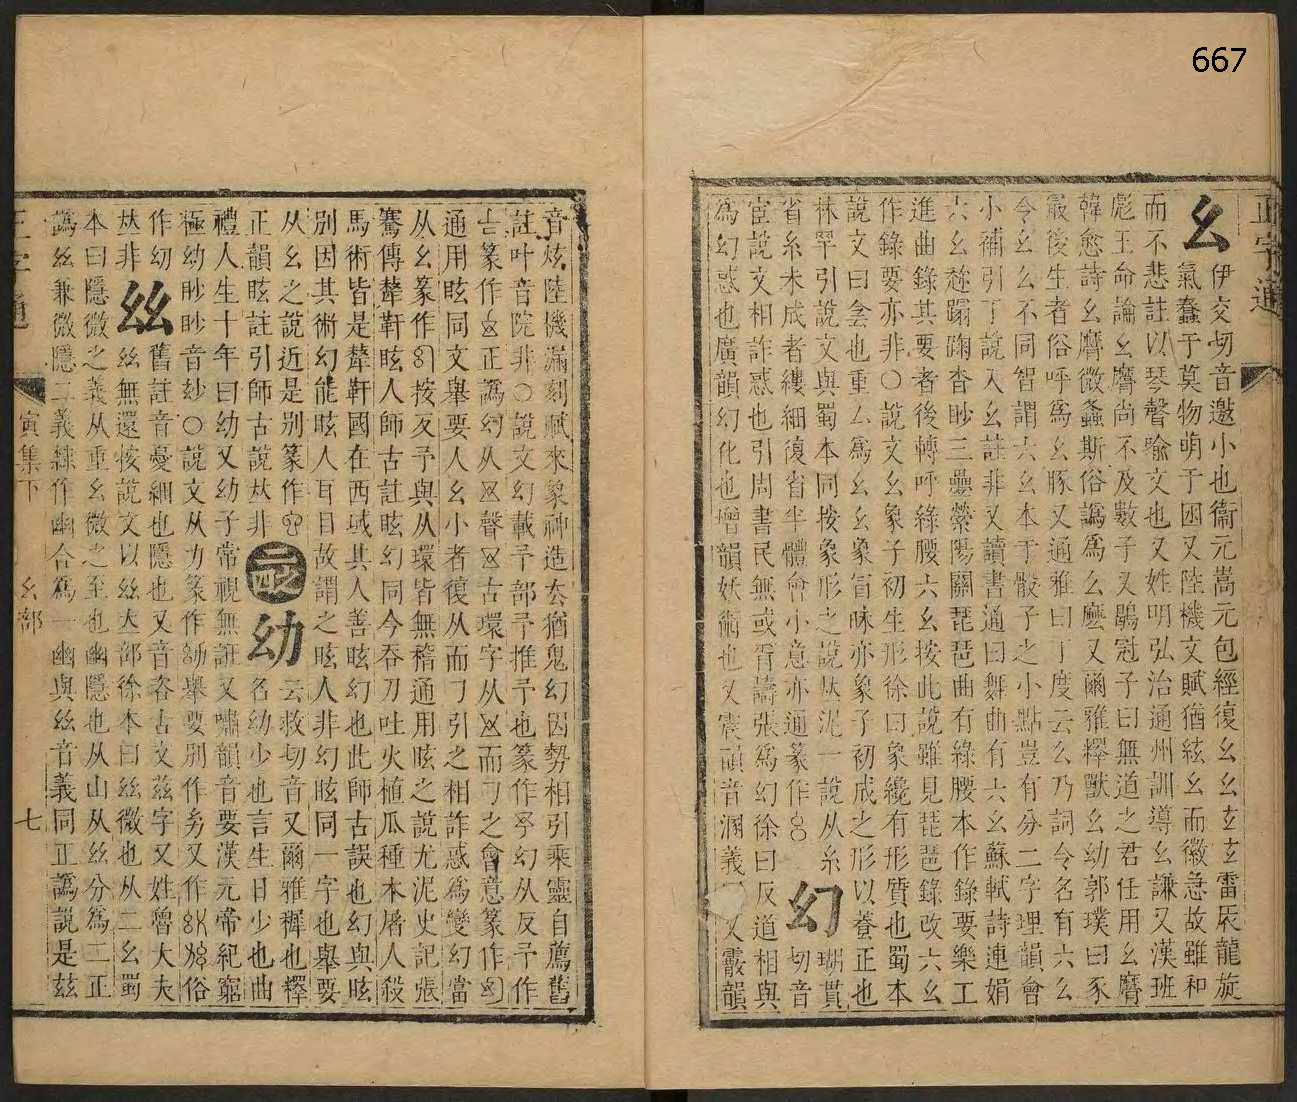 667
正字通
幺伊交切音邀小也衞元嵩元包經復幺幺㐀㐀雷辰龍旋
氣蠢于莫物萌于困又陸機文賦猶絃幺而徽急故雖和
而不悲註以琴聲喻文也又姓明弘治通州訓導幺謙又漢班
彪王命論幺麿尚不及數子又鶡冠子曰無道之君任用幺麿
韓愈詩幺麿微螽斯俗譌爲么麼又爾雅釋獸幺幼郭璞曰豕
最後生者俗呼爲幺豚又通雅曰丁度云么乃詞令名有六么
令幺么不同智謂六幺本于骰子之小點豈有分二字理韻會
小補引丁說入幺註非又讀書通曰舞曲有六幺蘇軾詩連娟
六幺趂蹋踘杳眇三疊縈陽關琵琶曲有綠腰本作錄要樂工
進曲錄其要者後轉呼綠腰六幺按此說雖見琵琶錄改六幺
作錄要亦非○說文幺象子初生形徐曰象纔有形質也蜀本
說文曰侌也重厶爲幺幺象盲昧亦象子初成之形以養正也
林罕引說文與蜀本同按象形之說𠀤泥一說从糸
省糸未成者縷細復省半體會小意亦通篆作 幻瑚貫切音
宦說文相詐惑也引周書民無或胥譸張爲幻徐曰反道相與
爲幻惑也廣韻幻化也增韻妖術也又震韻音 義 又霰韻
音炫陸機漏刻賦來象神造去猶鬼幻因勢相引乘靈自薦舊
註叶音院非○說文幻載予部予推予也篆作 幻从反予作
篆作 正譌幻从 聲 古環字从 而 之會意篆作
通用眩同文舉要人幺小者復从而 引之相詐惑爲變幻當
从幺篆作 按反予與从環皆無稽通用眩之說尤泥史記張
騫傳犛軒眩人師古註眩幻同今吞刀吐火植瓜種本屠人殺
馬術皆是犛軒國在西域其人善眩幻也此師古誤也幻與眩
別因其術幻能眩人耳目故謂之眩人非幻眩同一字也舉要
从幺之說近是別篆作
正韻眩註引師古說𠀤非 幼云救切音又爾雅穉也釋名幼少也言生日少也曲
禮人生十年曰幼又幼子常視無誑又嘯韻音要漢元帝紀窮
極幼眇眇音妙○說文从力篆作 舉要別作 又作 俗
作幼𠀤非 𢆶舊註音憂細也隱也又音咨古文茲字又姓魯大夫
𢆶無還按說文以𢆶𠀤部徐本曰𢆶微也从二幺蜀
本曰隱微之義从重幺微之至也幽隱也从山从𢆶分爲二正
譌𢆶兼微隱二義隸作幽合爲一幽與𢆶音義同正譌說是茲
正字通
寅集下 幺部
七